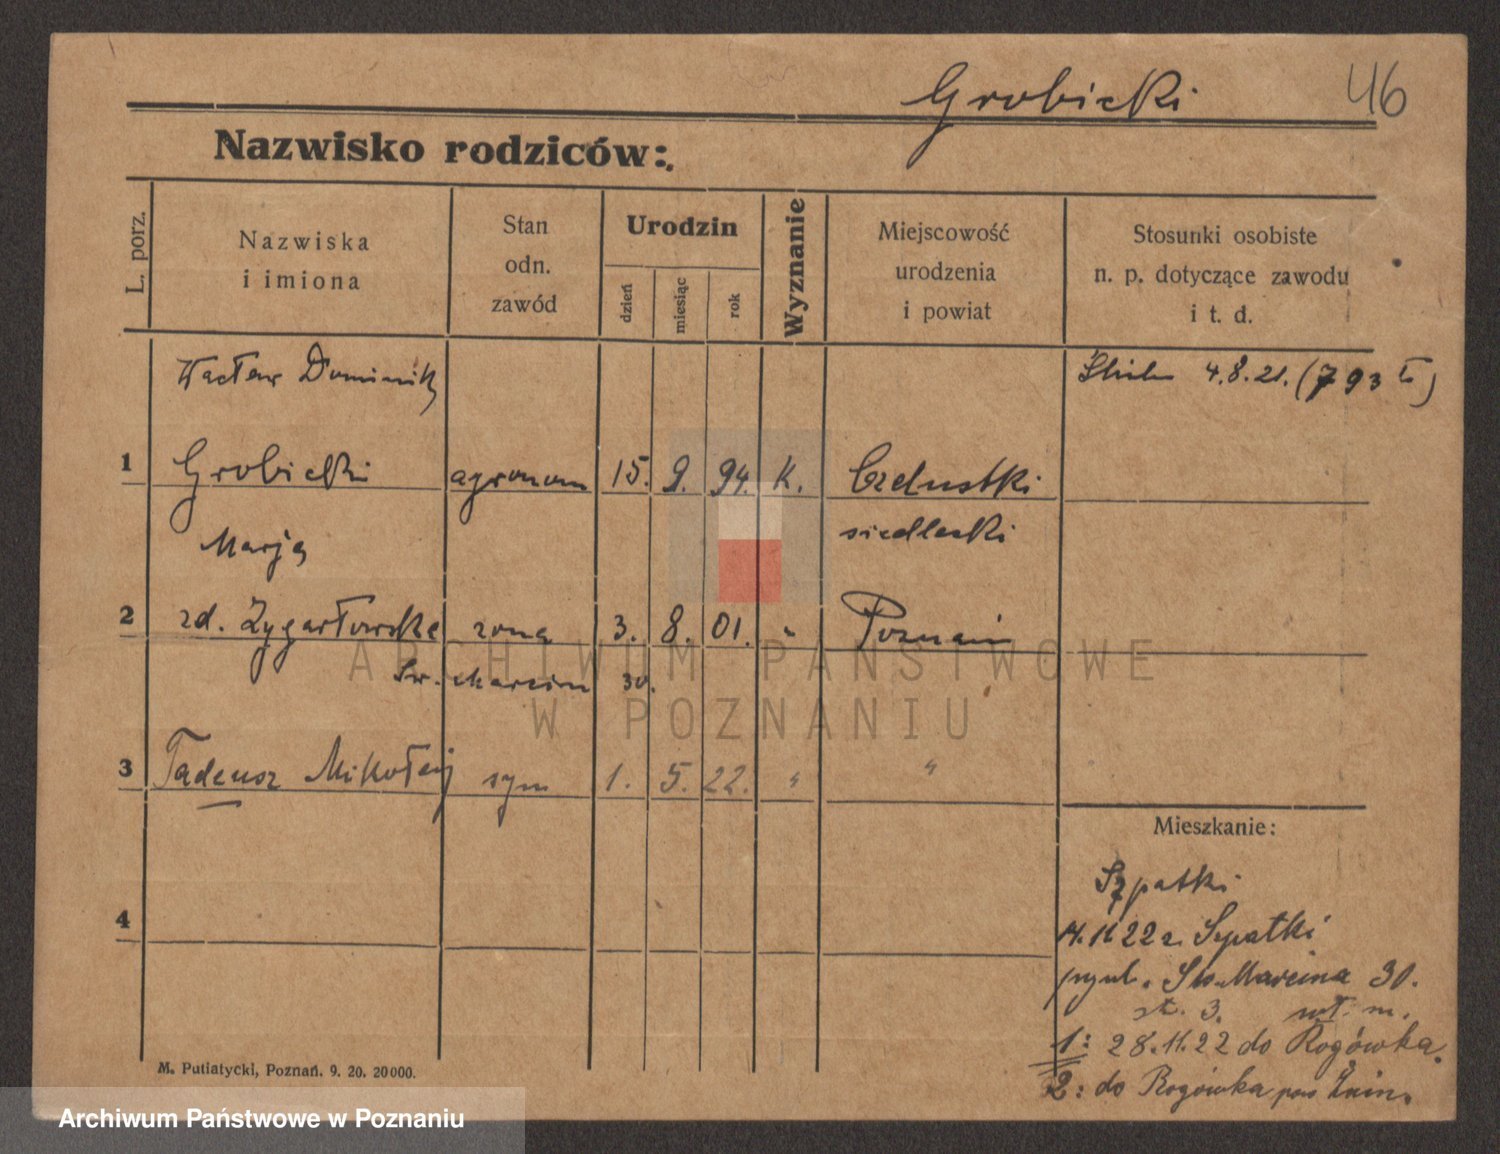 Grobicki 46
Nazwisko rodziców:
L. porz.
Nazwiska
i imiona
Stan
odn.
zawód
Urodzin
dzień
miesiąc
rok
Wyznanie
Miejscowość
urodzenia
i powiat
Stosunki osobiste
n. p. dotyczące zawodu
i t. d.
Wacław Dominik
4.8.21. (793
1 Grobicki agronom 15. 9. 94. K. Czelustki
Marja siedlecki
2 zd. Żygarłowska żona 3. 8. 01. " Poznań
Św. Marcin 30.
3 Tadeusz Mikołaj syn 1. 5. 22. " "
4
Mieszkanie:
Szpatki
14.11.22 z Szpatki
Św. Marcina 30.
st. 3.
1: 28.11.22 do Rogówka.
2: do Rogówka pow Żnin.
M. Putiatycki, Poznań. 9. 20. 20000.
ARCHIWUM PAŃSTWOWE
W POZNANIU
Archiwum Państwowe w Poznaniu